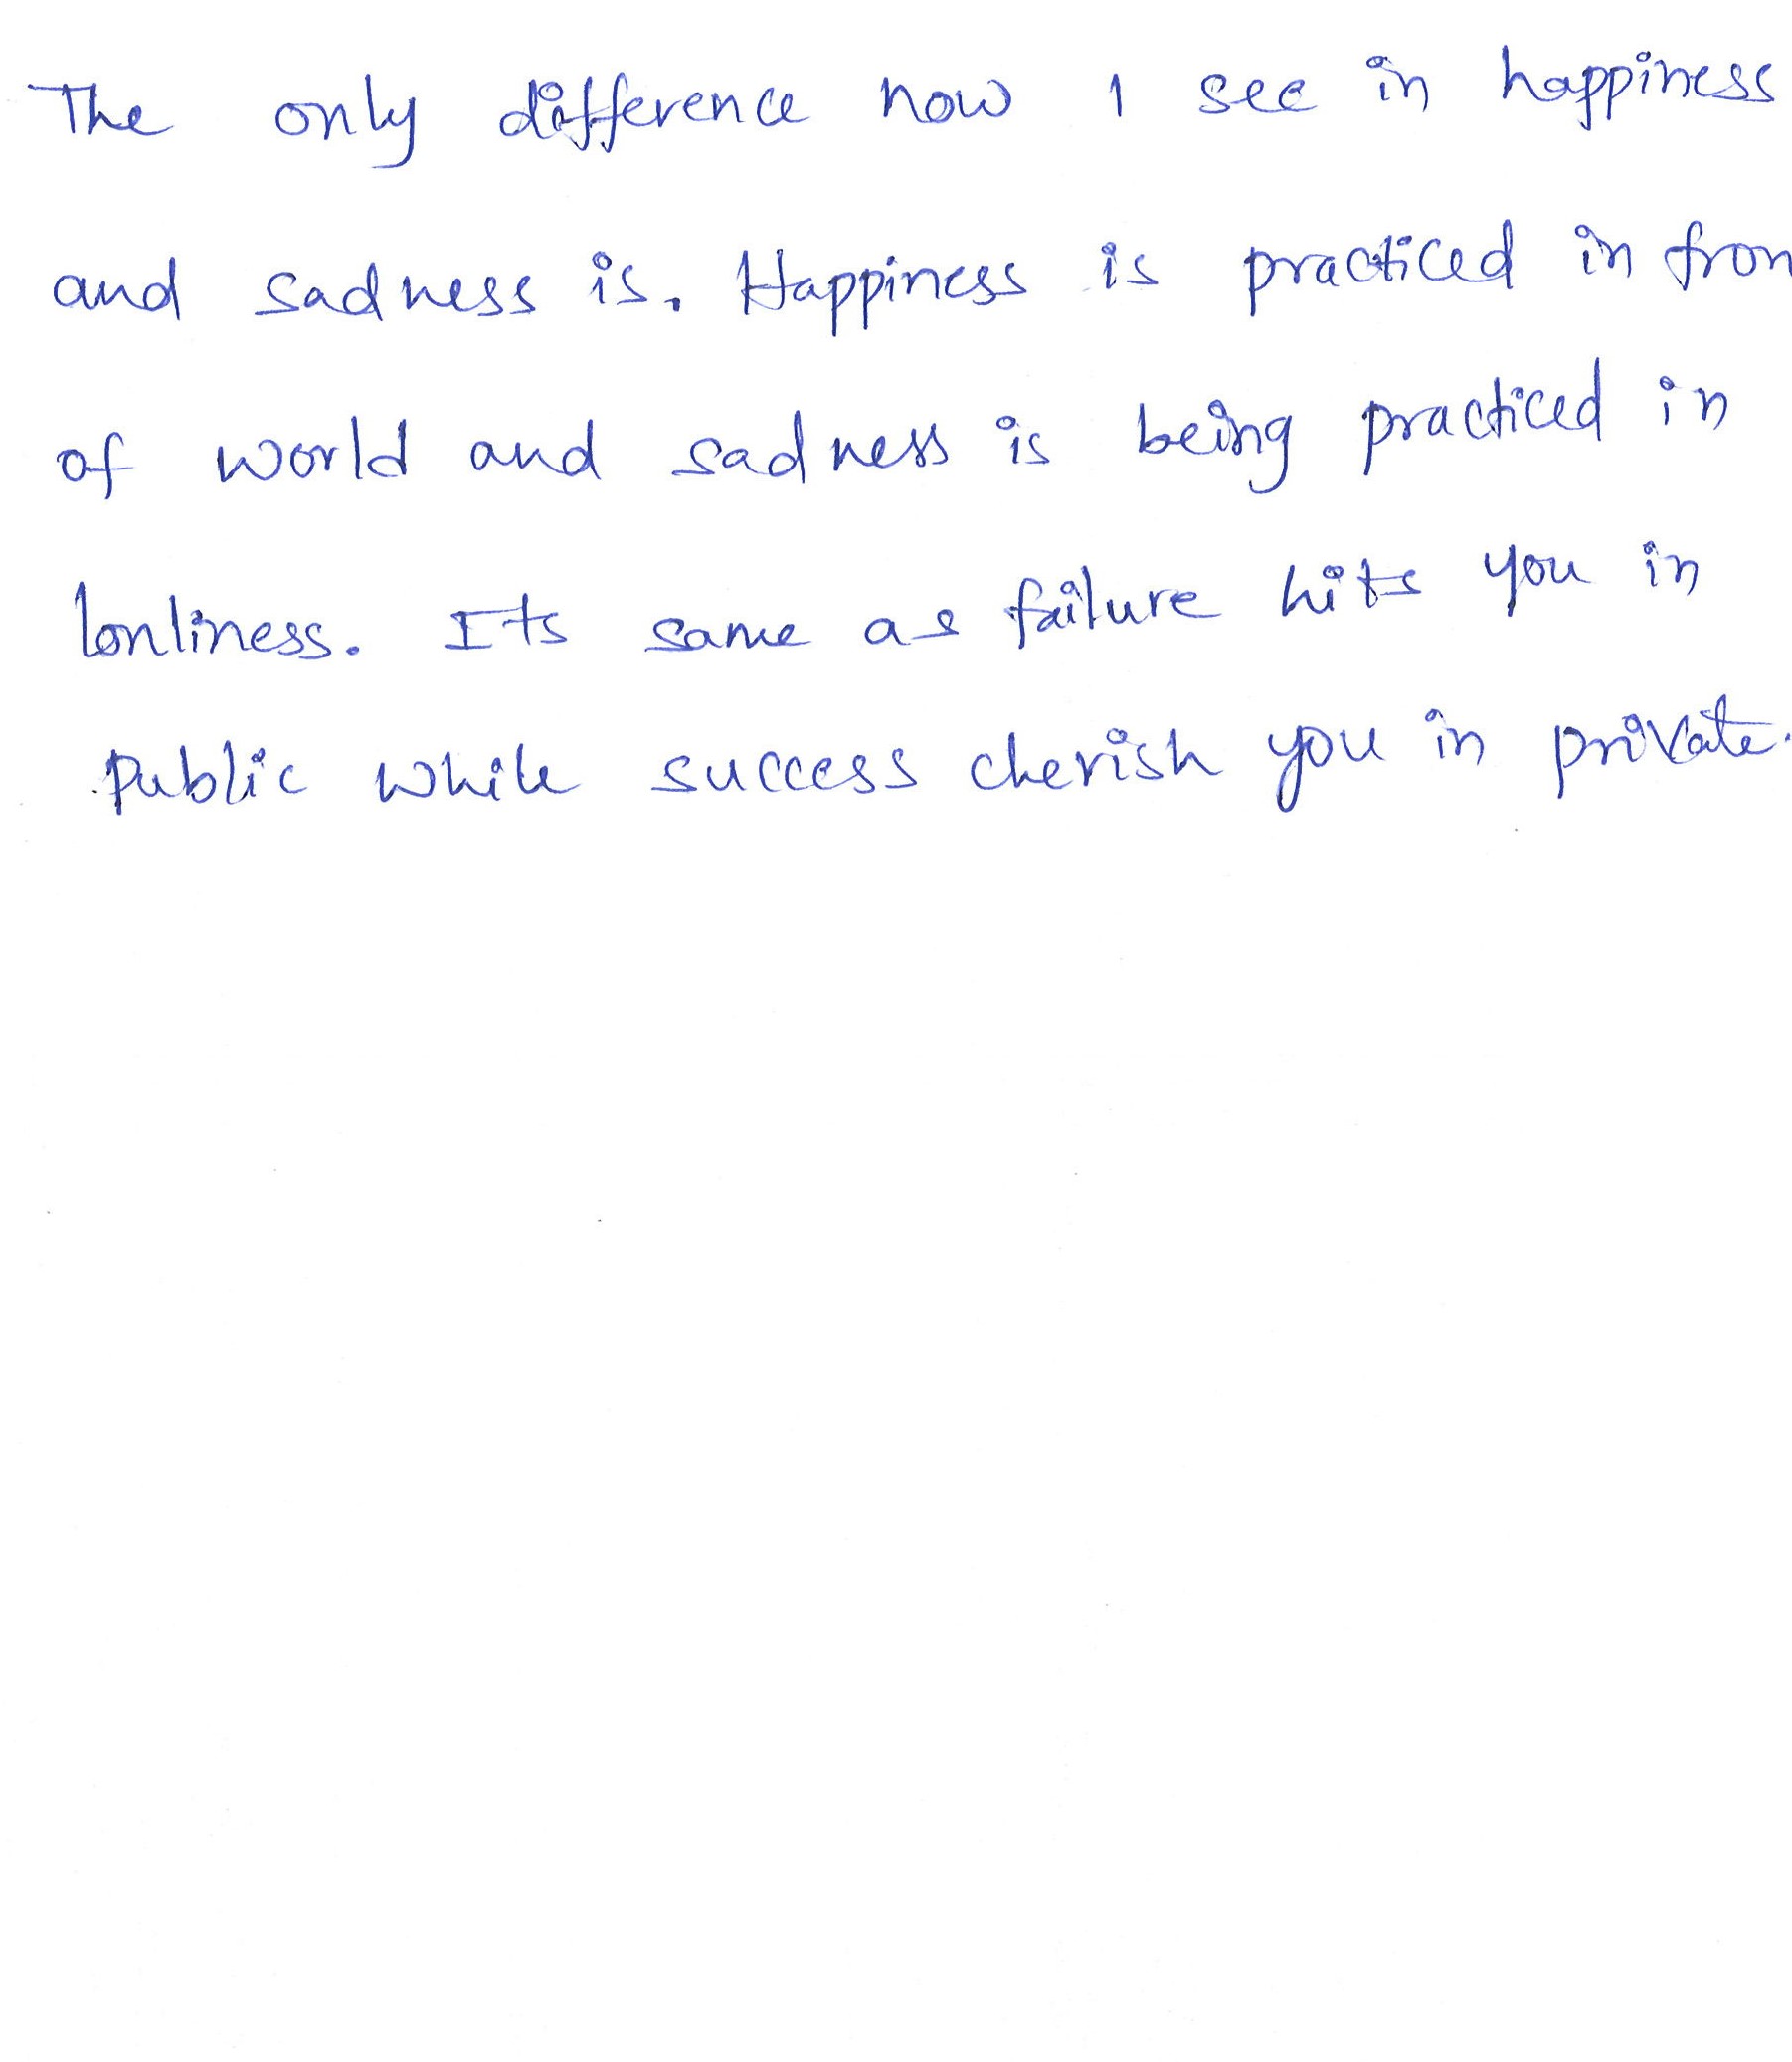 The only difference now I see in happiness
and sadness is. Happiness is practiced in fron
of world and sadness is being practiced in
lonliness. Its same as failure hits you in
Public while success cherish you in private.